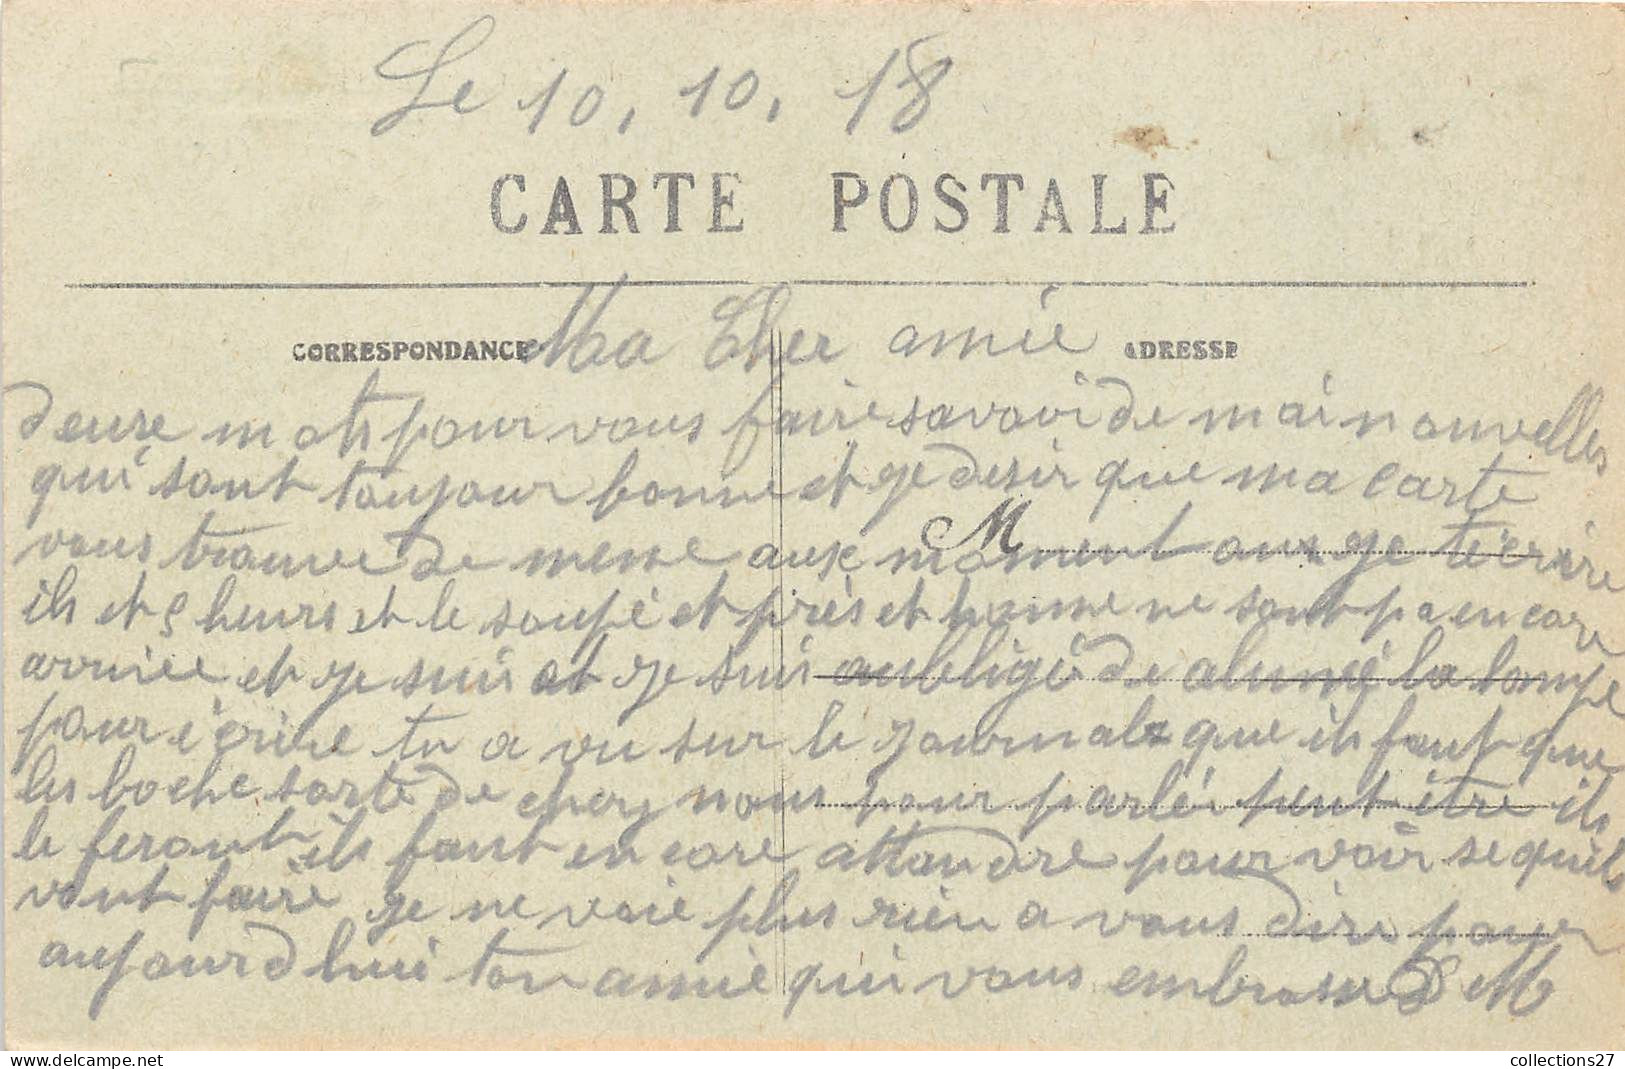 Le 10, 10, 18
CARTE POSTALE
CORRESPONDANCE Ma Cher amie ADRESSE
deuxe mots pour vous faire savoir de mai nouvelles
qui sont toujour bonne et je desir que ma carte
M
vous trouve de meme aux moment oux je t'ecrire
ils et 5 heurs et le soupé et près et homme ne sont pa encore
arrivée et je suis et je suis oubligé de alumé la lampe
pour écrire tu a vu sur le journal que ils faut que
les boche sorte de chez nous pour parlér peut être ils
le feront ils faut encore attandre pour voir se quils
vont faire je ne voie plus rien a vous dire pour
aujourd'hui ton amie qui vous embrasse M
collections27